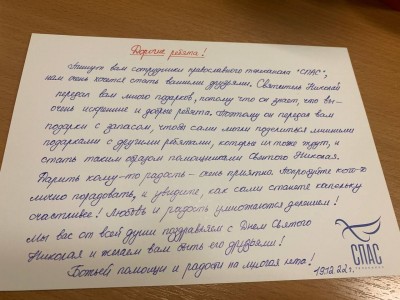 Дорогие ребята!
Пишут вам сотрудники православного телеканала "СПАС",
нам очень хочется стать вашими друзьями. Святитель Николай
передал вам много подарков, потому что он знает, что вы -
очень искренние и добрые ребята. Поэтому он передал вам
подарки с запасом, чтобы сами могли поделиться лишними
подарками с другими ребятами, которые их тоже ждут, и
стать таким образом помощниками Святого Николая.
Дарить кому-то радость - очень приятно. Попробуйте кого-то
лично порадовать, и увидите, как сами станете капельку
счастливее! Любовь и радость умножаются делением!
Мы вас от всей души поздравляем с Днем Святого
Николая и желаем вам быть его друзьями!
Божьей помощи и радости на многая лета!
СПАС
ТЕЛЕКАНАЛ
19.12.22 г.